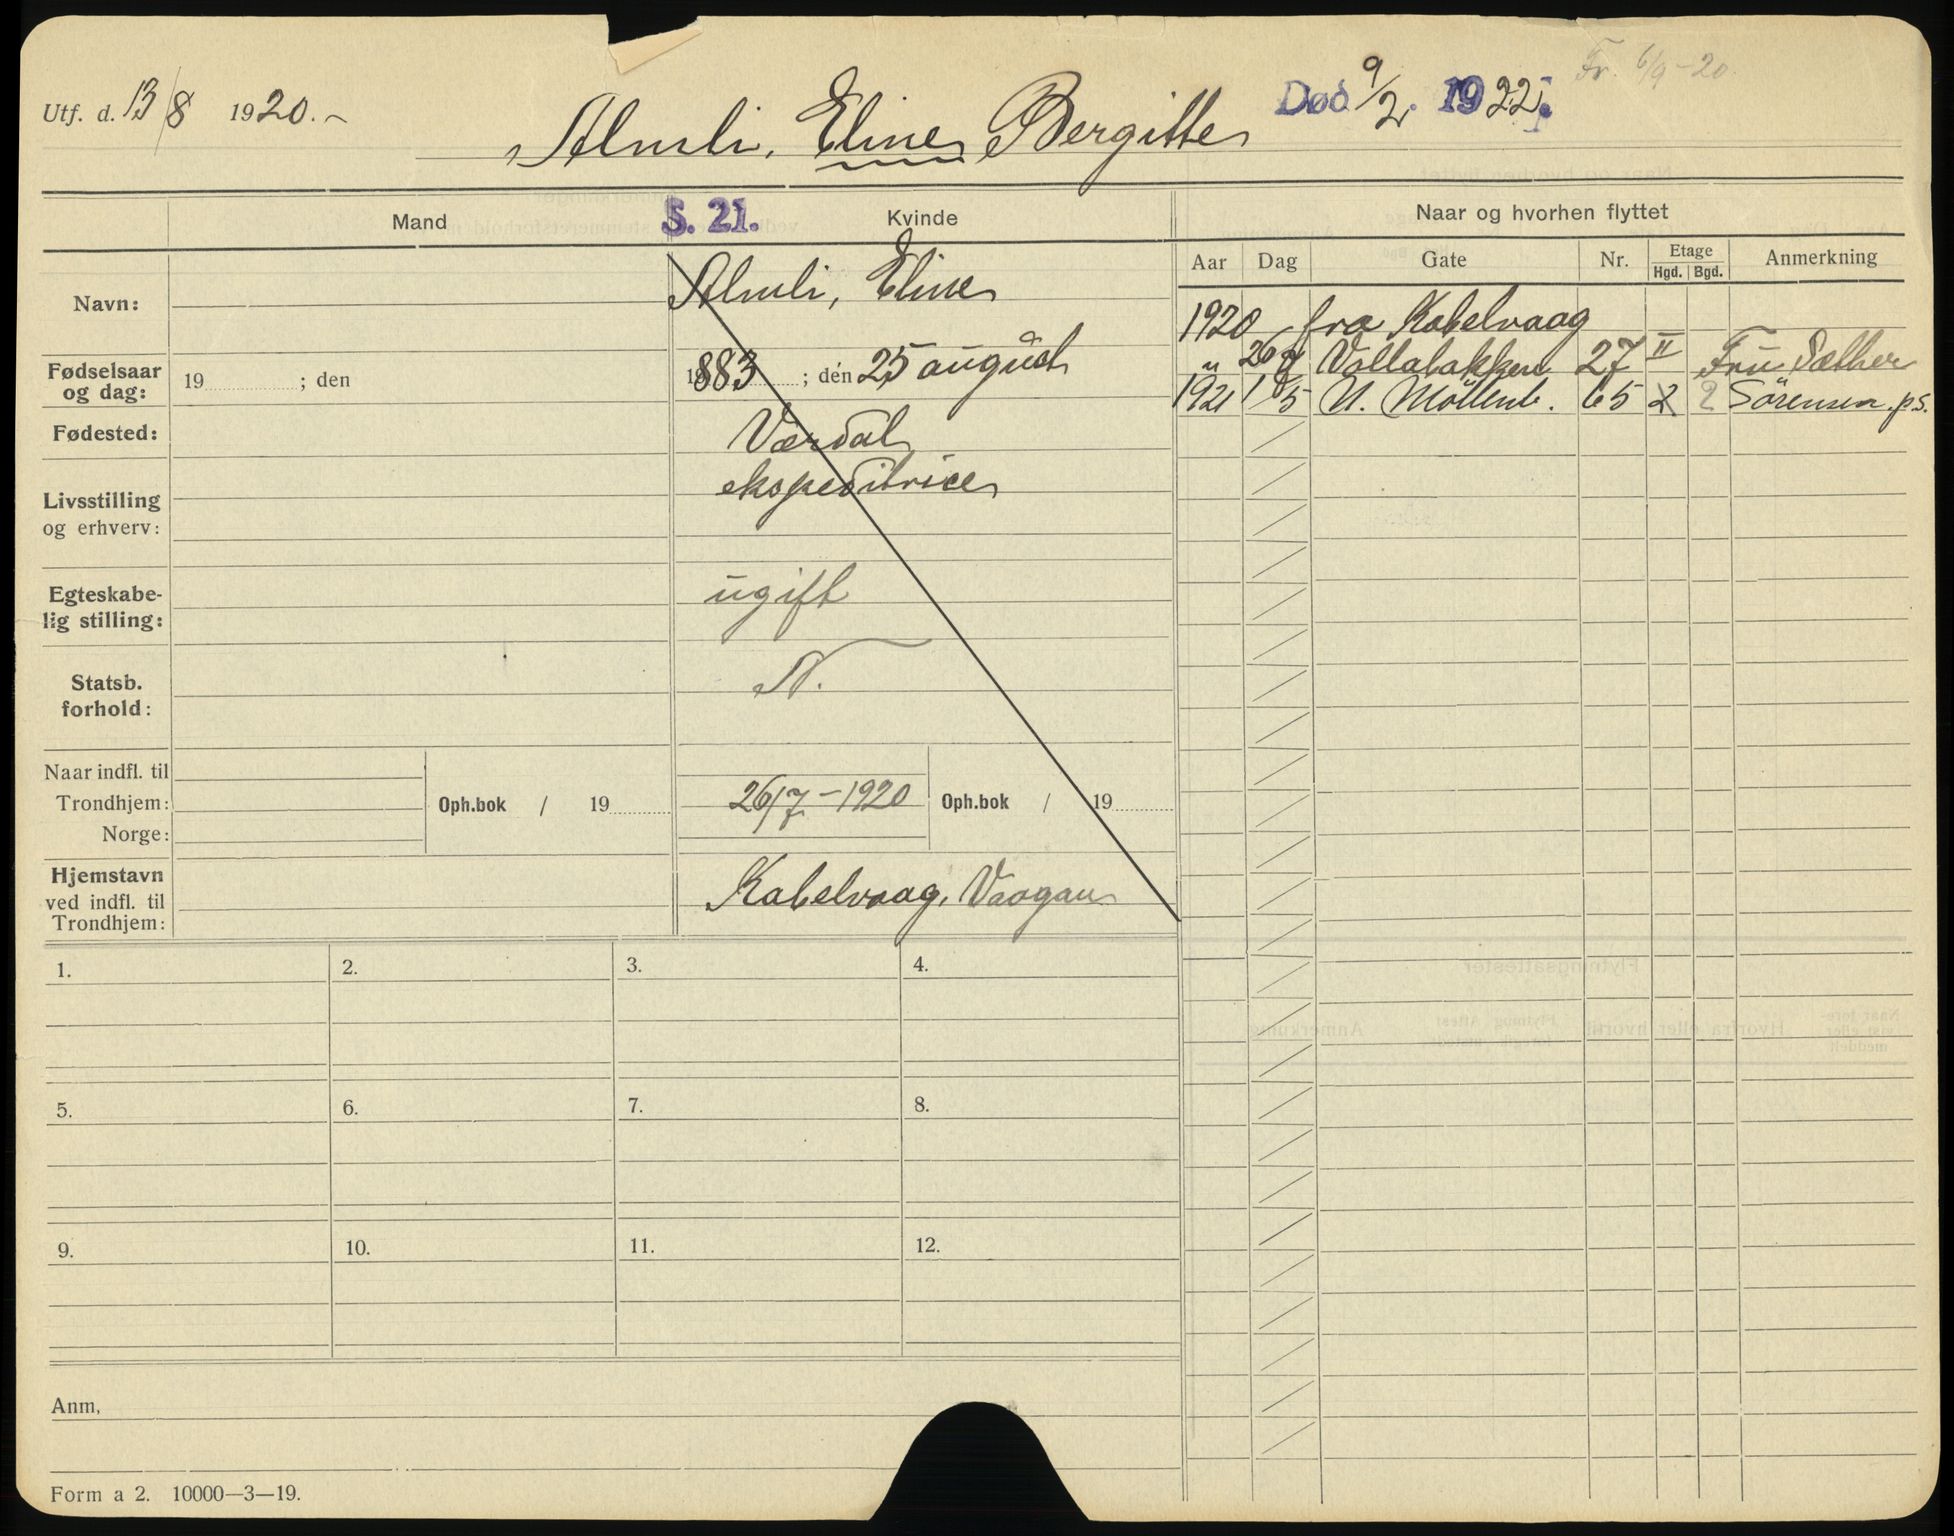 Utf. d. 13/8 1920.
Almli, Eline Bergitte
Død 9/2. 1922.
Fr. 6/9-20.
Mand
S. 21.
Kvinde
Naar og hvorhen flyttet
Aar Dag Gate Nr. Etage Hgd. Bgd. Anmerkning
Navn: Almli, Eline
Fødselsaar og dag: 19 ; den 1883 ; den 25 august
Fødested: Værdal
Livsstilling og erhverv: ekspeditrice
Egteskabe-
lig stilling: ugift
Statsb.
forhold: N.
Naar indfl. til
Trondhjem: Oph.bok / 19 26/7-1920 Oph.bok / 19
Norge:
Hjemstavn
ved indfl. til
Trondhjem: Kabelvaag, Vaagan
1920 fra Kabelvaag
" 26/7 Vollabakken 27 II Fru Sæther
1921 1/5 N. Möllenb. 65 2 2 Sörensen p.s.
1. 2. 3. 4.
5. 6. 7. 8.
9. 10. 11. 12.
Anm,
Form a 2. 10000—3—19.